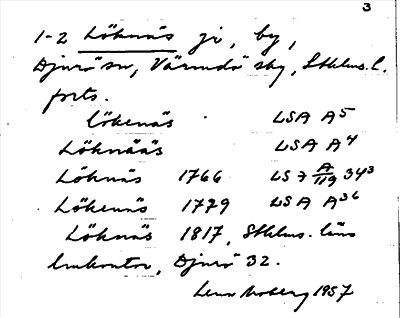 3
1-2 Löknäs gd, by,
Djurö sn, Värmdö sky, Sthlms. l.
forts.
Lökenäs LSA A5
Löknääs LSA A4
Löknäs 1766 LSA A/119 343
Lökenäs 1779 LSA A36
Löknäs 1817, Sthlms. läns
lmkontor, Djurö 32.
Moberg 1957